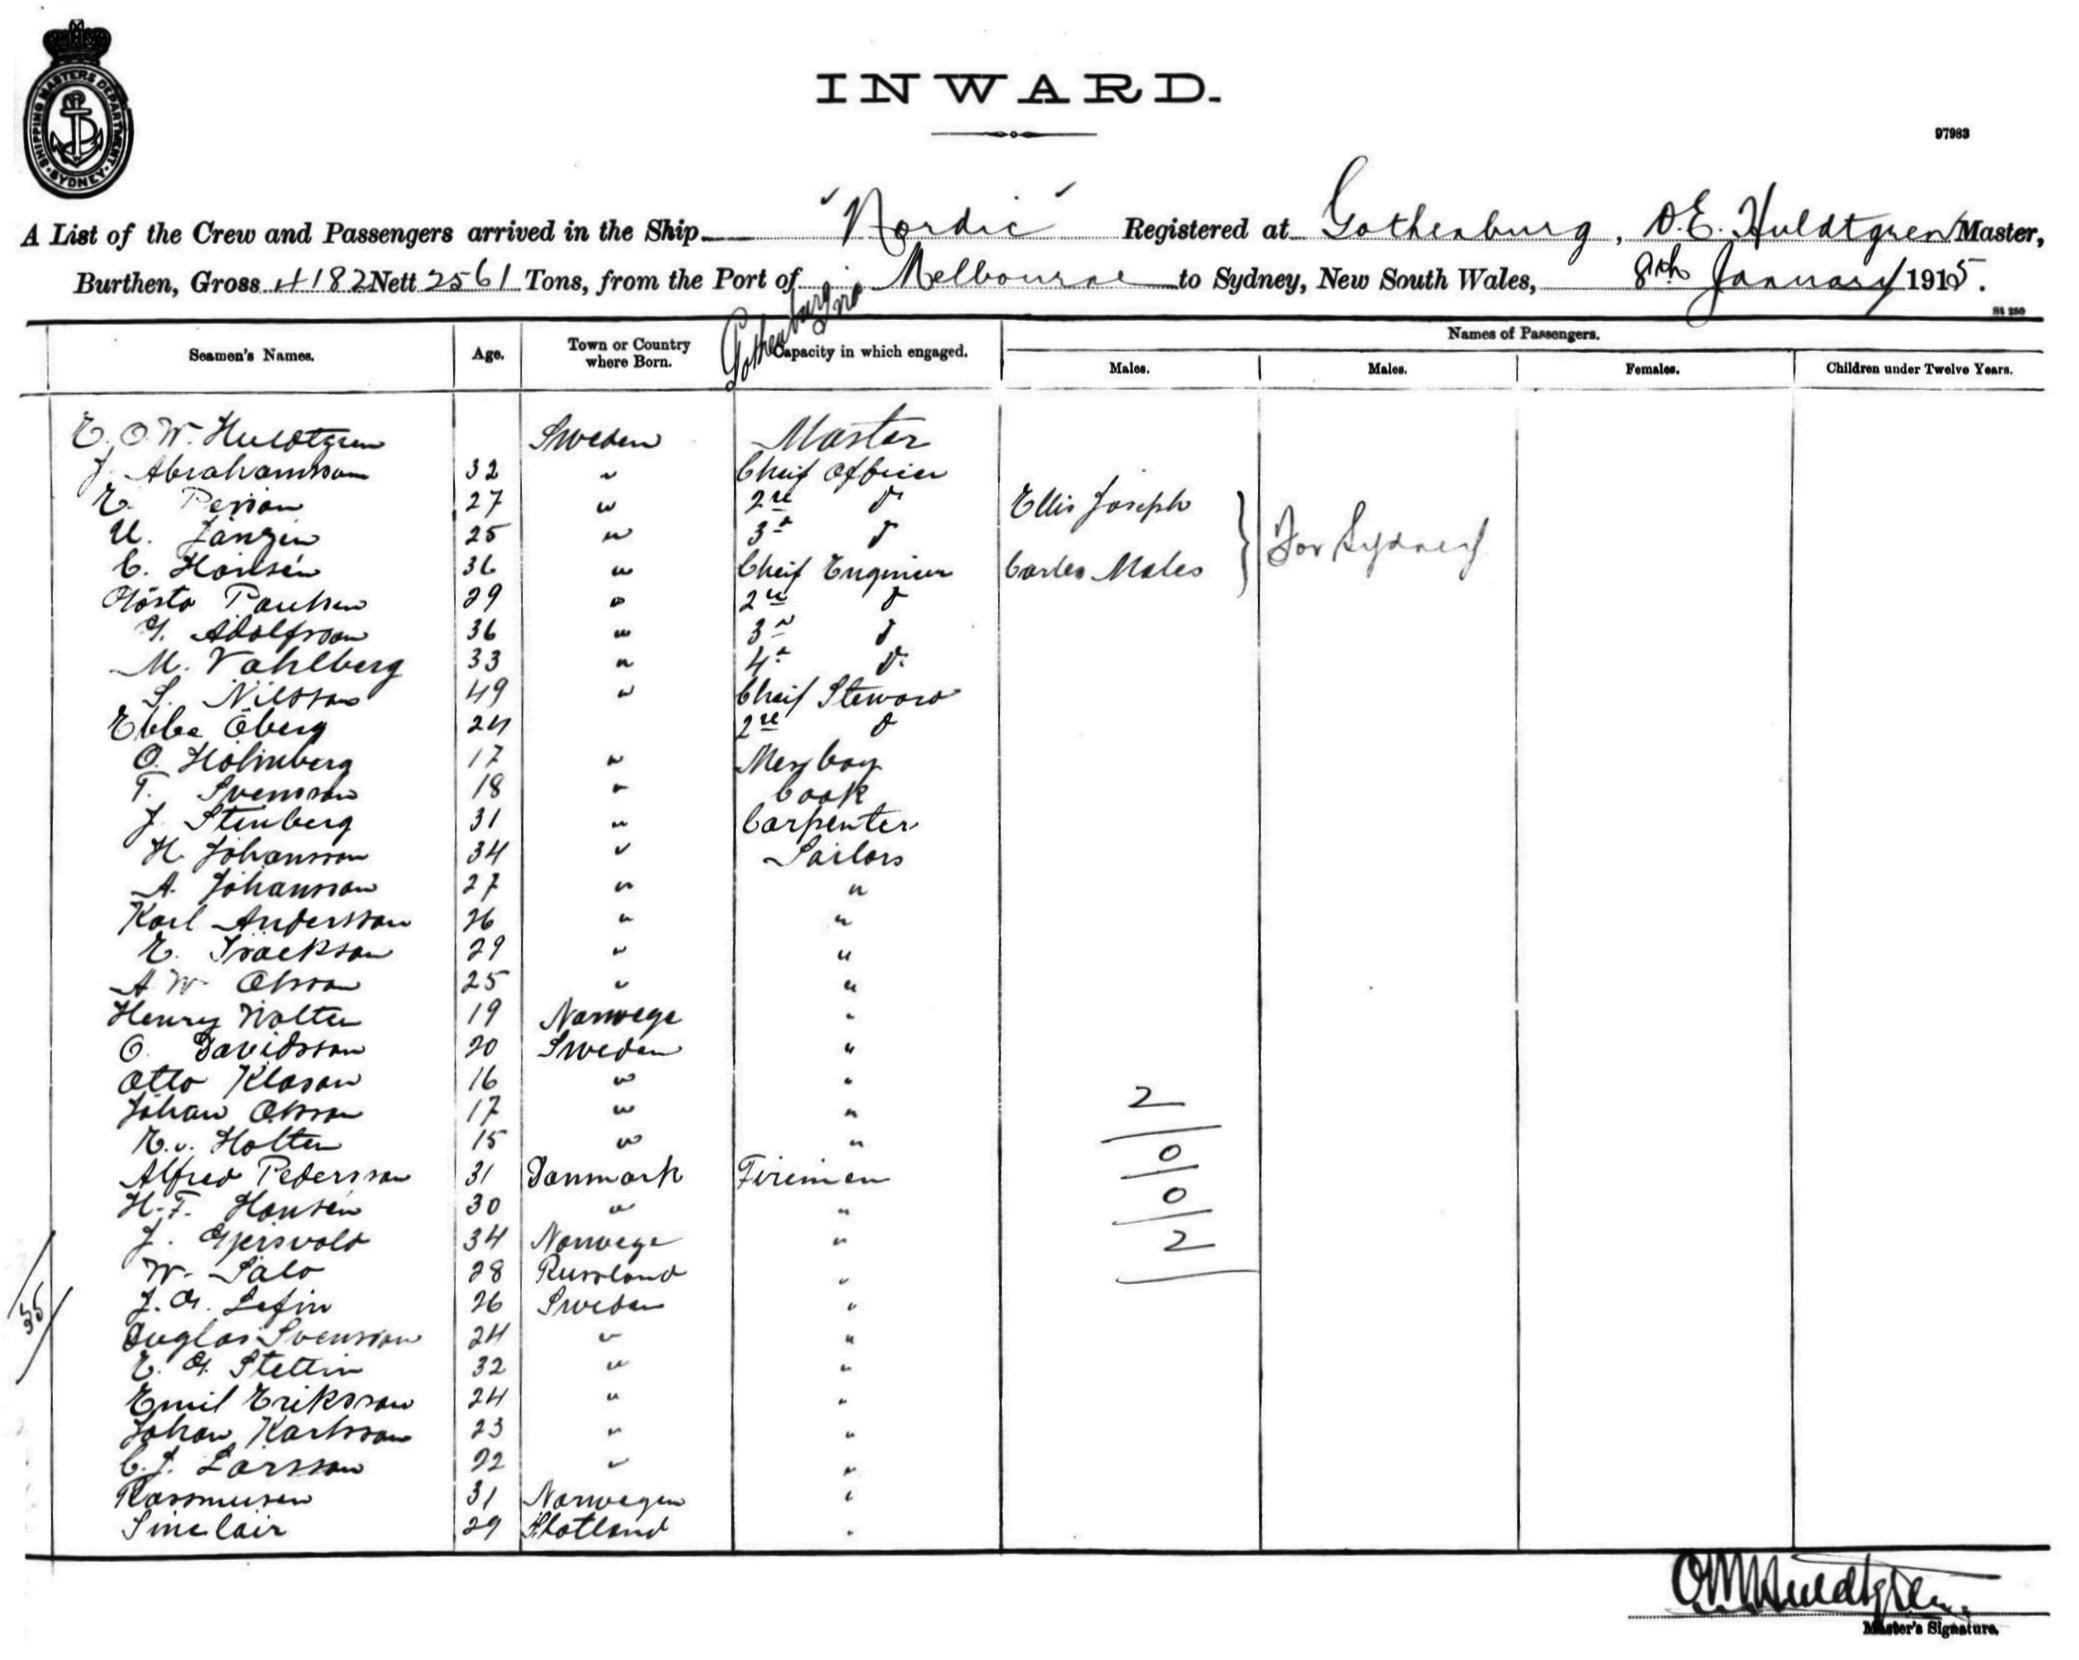 SHIPPING MASTERS DEPARTMENT
SYDNEY
INWARD.
97983
A List of the Crew and Passengers arrived in the Ship "Nordic" Registered at Gothenburg, O.E. Huldtgren Master,
Burthen, Gross 4182 Nett 2561 Tons, from the Port of Gothenburg via Melbourne to Sydney, New South Wales, 8th January 1915.
St 250
Seamen's Names. Age. Town or Country where Born. Capacity in which engaged. Names of Passengers.
Males. Males. Females. Children under Twelve Years.
E. O. W. Huldtgren Sweden Master
J. Abrahamsson 32 " Cheif Officer
E. Persson 27 " 2nd d Ellis Joseph
U. 25 " 3d d For Sydney
C. Hansén 36 " Cheif Engineer Carles Males
Gösta Paulsen 29 " 2nd d
G. Adolfsson 36 " 3d d
M. Vahlberg 33 " 4d d.
S. Nilsson 49 " Cheif Steward
Ebbe Öberg 24 2nd d
O. Holmberg 17 " Messboy
T. Svensson 18 " Cook
J. Stenberg 31 " Carpenter
H. Johansson 34 " Sailors
A. Johansson 27 " "
Karl Andersson 26 " "
E. Isackson 29 " "
A W Olsson 25 " "
Henry Wolter 19 Norwege "
O. Davidsson 20 Sweden "
Otto Klason 16 " "
Johan Olsson 17 " " 2
E. v. Holten 15 " " 0
Alfred Pedersson 31 Danmark Firemen
H. F. Hansén 30 " " 0
J. Gjersvold 34 Norwege " 2
W. Salo 28 Russland "
J. A. Lefin 26 Sweden "
35
Duglas Svensson 24 " "
E. A. Stettin 32 " "
Emil Eriksson 24 " "
Johan Karlsson 23 " "
C. J. Larsson 22 " "
Rassmusen 31 Norwegen "
Sinclair 29 Skotland "
O W Huldtgren.
Master's Signature.